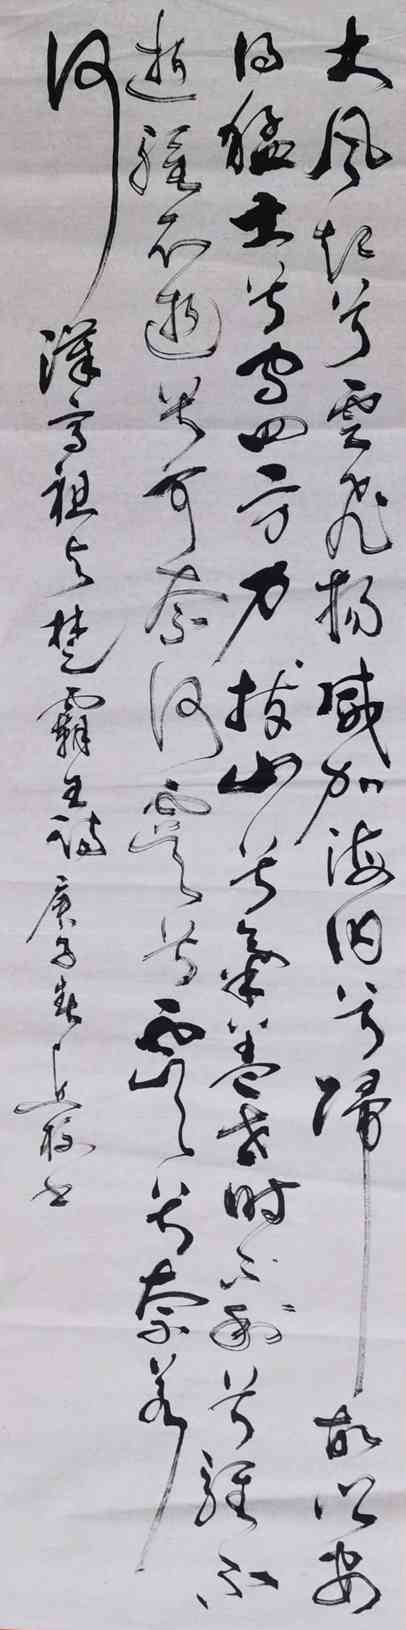 大風起兮雲飛揚威加海内兮歸故鄉安
得猛士兮守四方力拔山兮氣蓋世時不利兮騅不
逝騅不逝兮可奈何虞兮虞兮奈若
何 漢高祖与楚霸王詩 庚子春 書